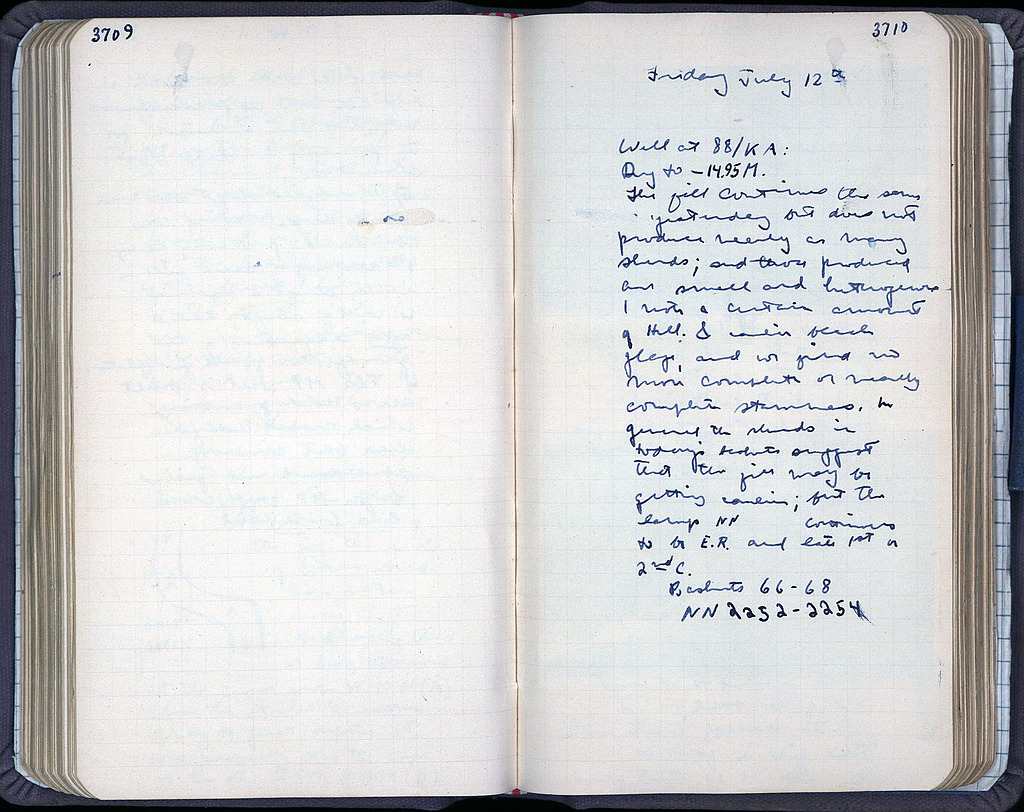 3709
3710
Friday July 12
Well at 88/KA:
Dug to -14.95M.
The fill continues the same
yesterday but does not
produce nearly as many
sherds; and those produced
are small and heterogeneous.
I note a certain amount
of Hell. & earlier black
glaze, and we find no
more complete or nearly
complete stamnoi. In
general the sherds in
today's baskets suggest
that the fill may be
getting earlier; but the
lamps NN continues
to be E.R. and late 1st or
2nd C.
Baskets 66-68
NN 2252-2254